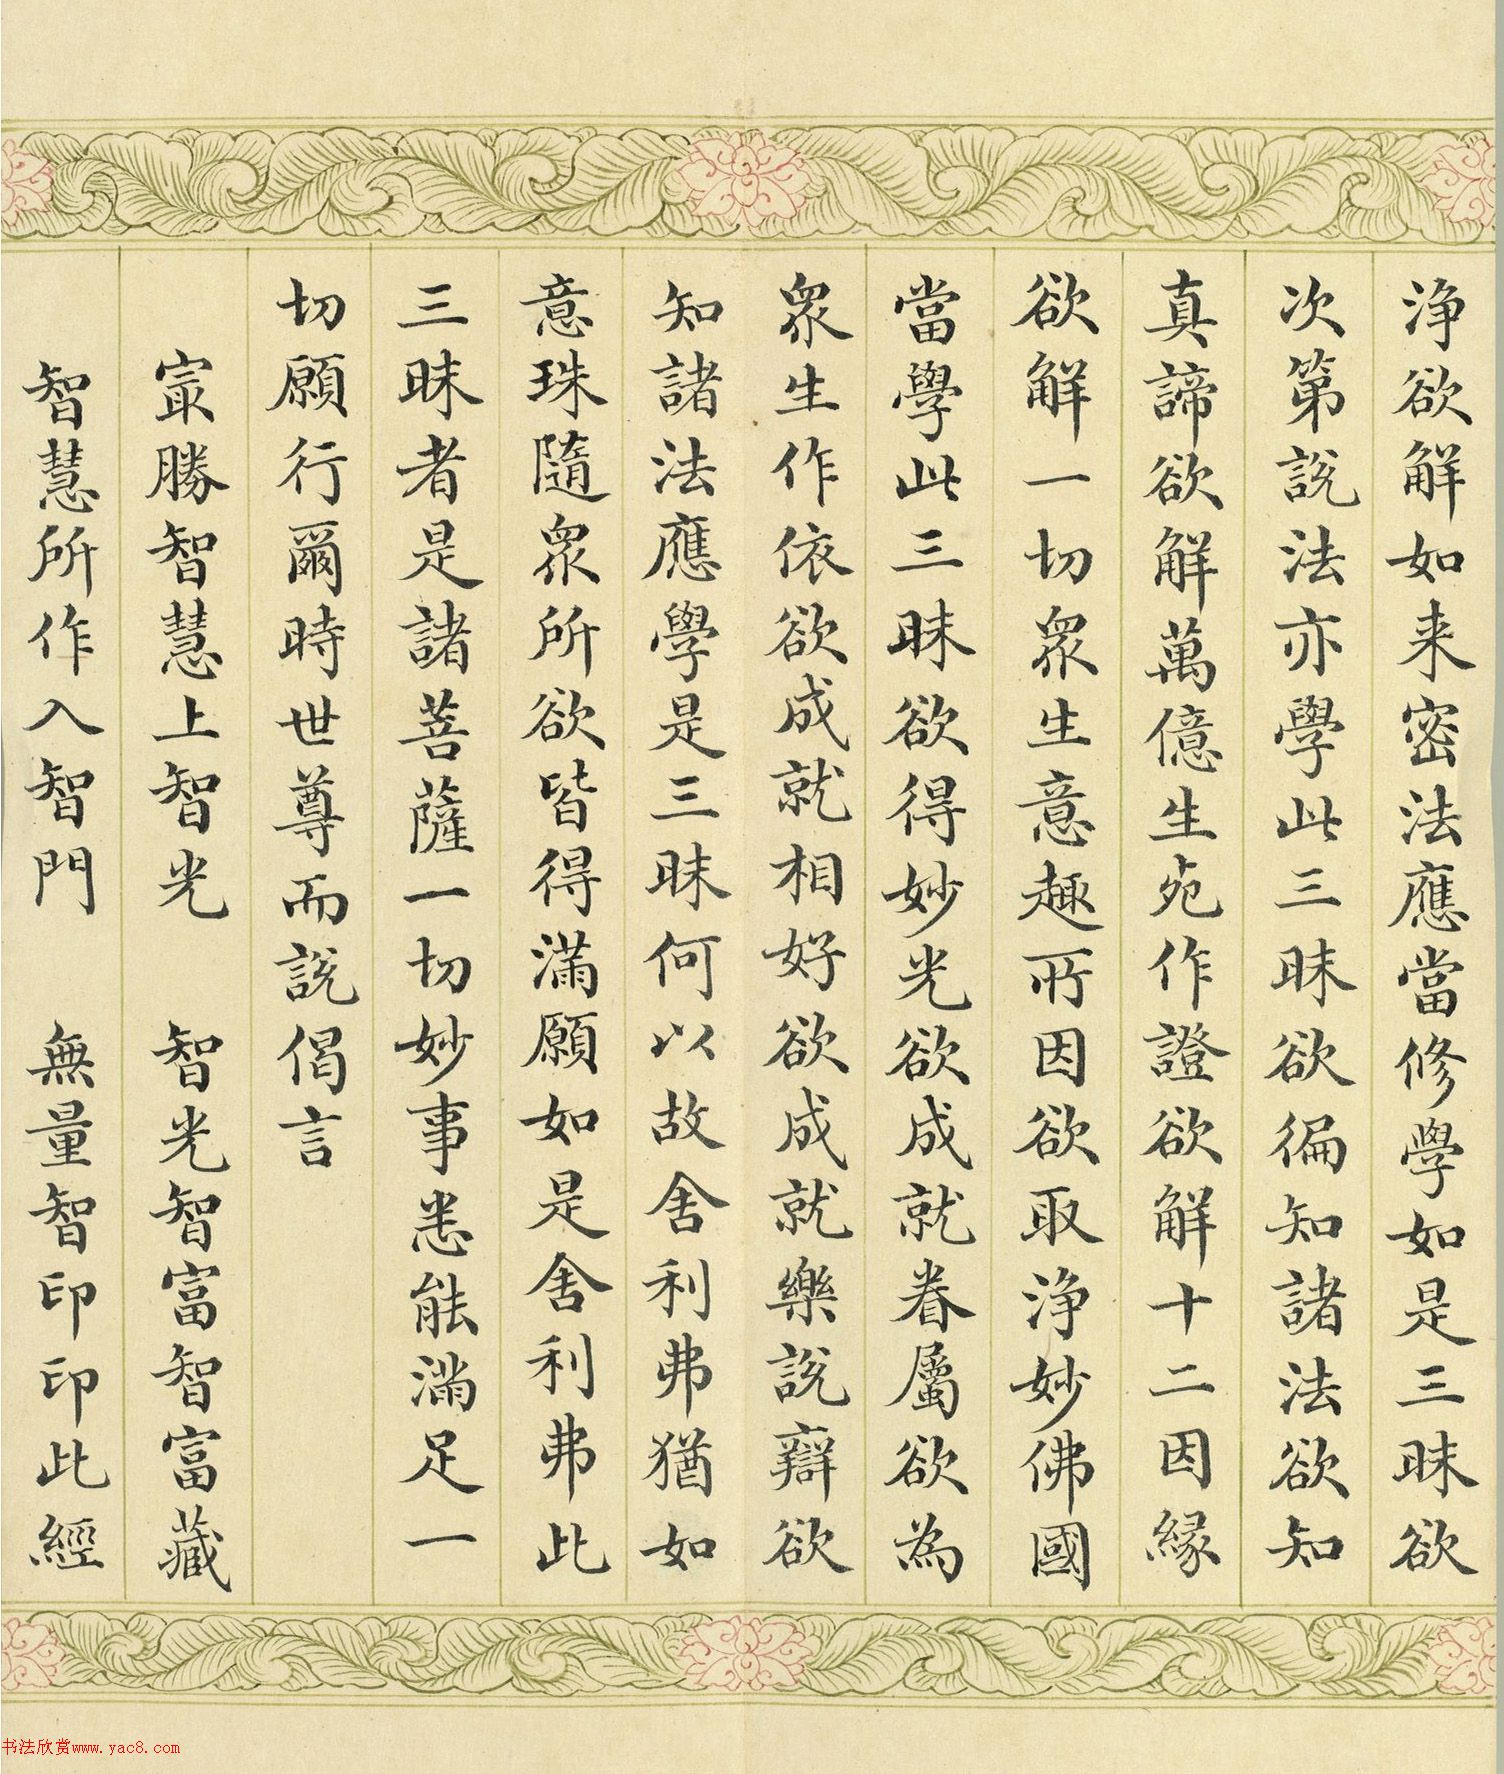 淨欲解如来密法應當修學如是三昧欲
次第説法亦學此三昧欲徧知諸法欲知
真諦欲解萬億生死作證欲解十二因縁
欲解一切眾生意趣所因欲取淨妙佛國
當學此三昧欲得妙光欲成就眷屬欲為
眾生作依欲成就相好欲成就樂説辯欲
知諸法應學是三昧何以故舍利弗猶如
意珠隨眾所欲皆得滿願如是舍利弗此
三昧者是諸菩薩一切妙事悉能滿足一
切願行爾時世尊而説偈言
冣勝智慧上智光 智光智富智富藏
智慧所作入智門 無量智印印此經
书法欣赏www.yac8.com